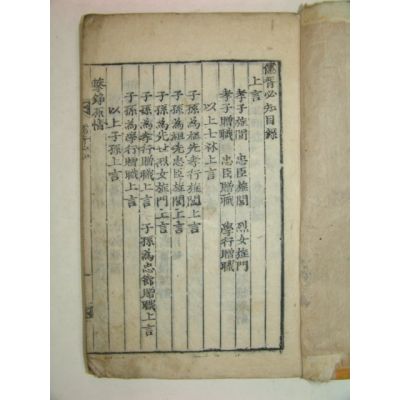 儒胥必知目錄
上言
孝子旌閭 忠臣旌閭 烈女旌門
孝子贈職 忠臣贈職 學行贈職
以上士林上言
子孫為祖先忠臣旌閭上言
子孫為祖先孝行旌閭上言
子孫為先世烈女旌門上言
子孫為孝行贈職上言 子孫為忠節贈職上言
子孫為學行贈職上言
以上子孫上言
擊錚原情